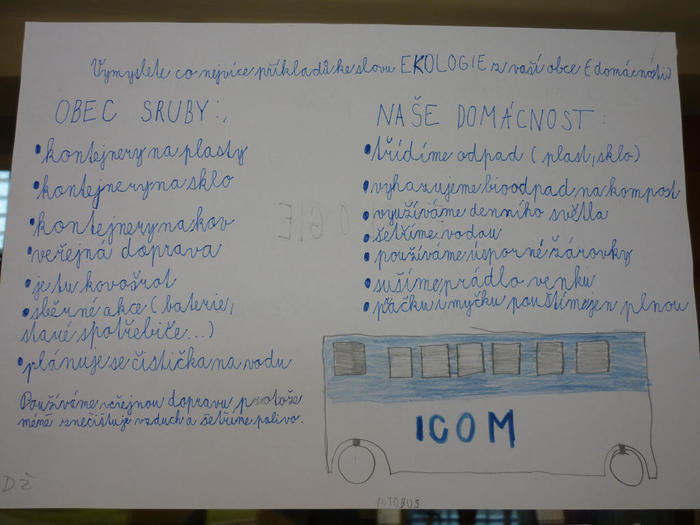 Vymyslete co nejvíce příkladů ke slovu EKOLOGIE z vaší obce (domácnosti)
OBEC SRUBY:
• kontejnery na plasty
• kontejnery na sklo
• kontejner na kov
• veřejná doprava
• je tu kovošrot
• sběrné akce (baterie,
staré spotřebiče...)
• plánuje se čistička na vodu
Používáme veřejnou dopravu protože
méně znečišťuje vzduch a šetříme palivo.
NAŠE DOMÁCNOST:
• třídíme odpad (plast, sklo)
• vyhazujeme bioodpad na kompost
• využíváme denního světla
• šetříme vodou
• používáme úsporné žárovky
• sušíme prádlo venku
• pračku i myčku pouštíme jen plnou
ICOM
DŽ
AUTOBUS